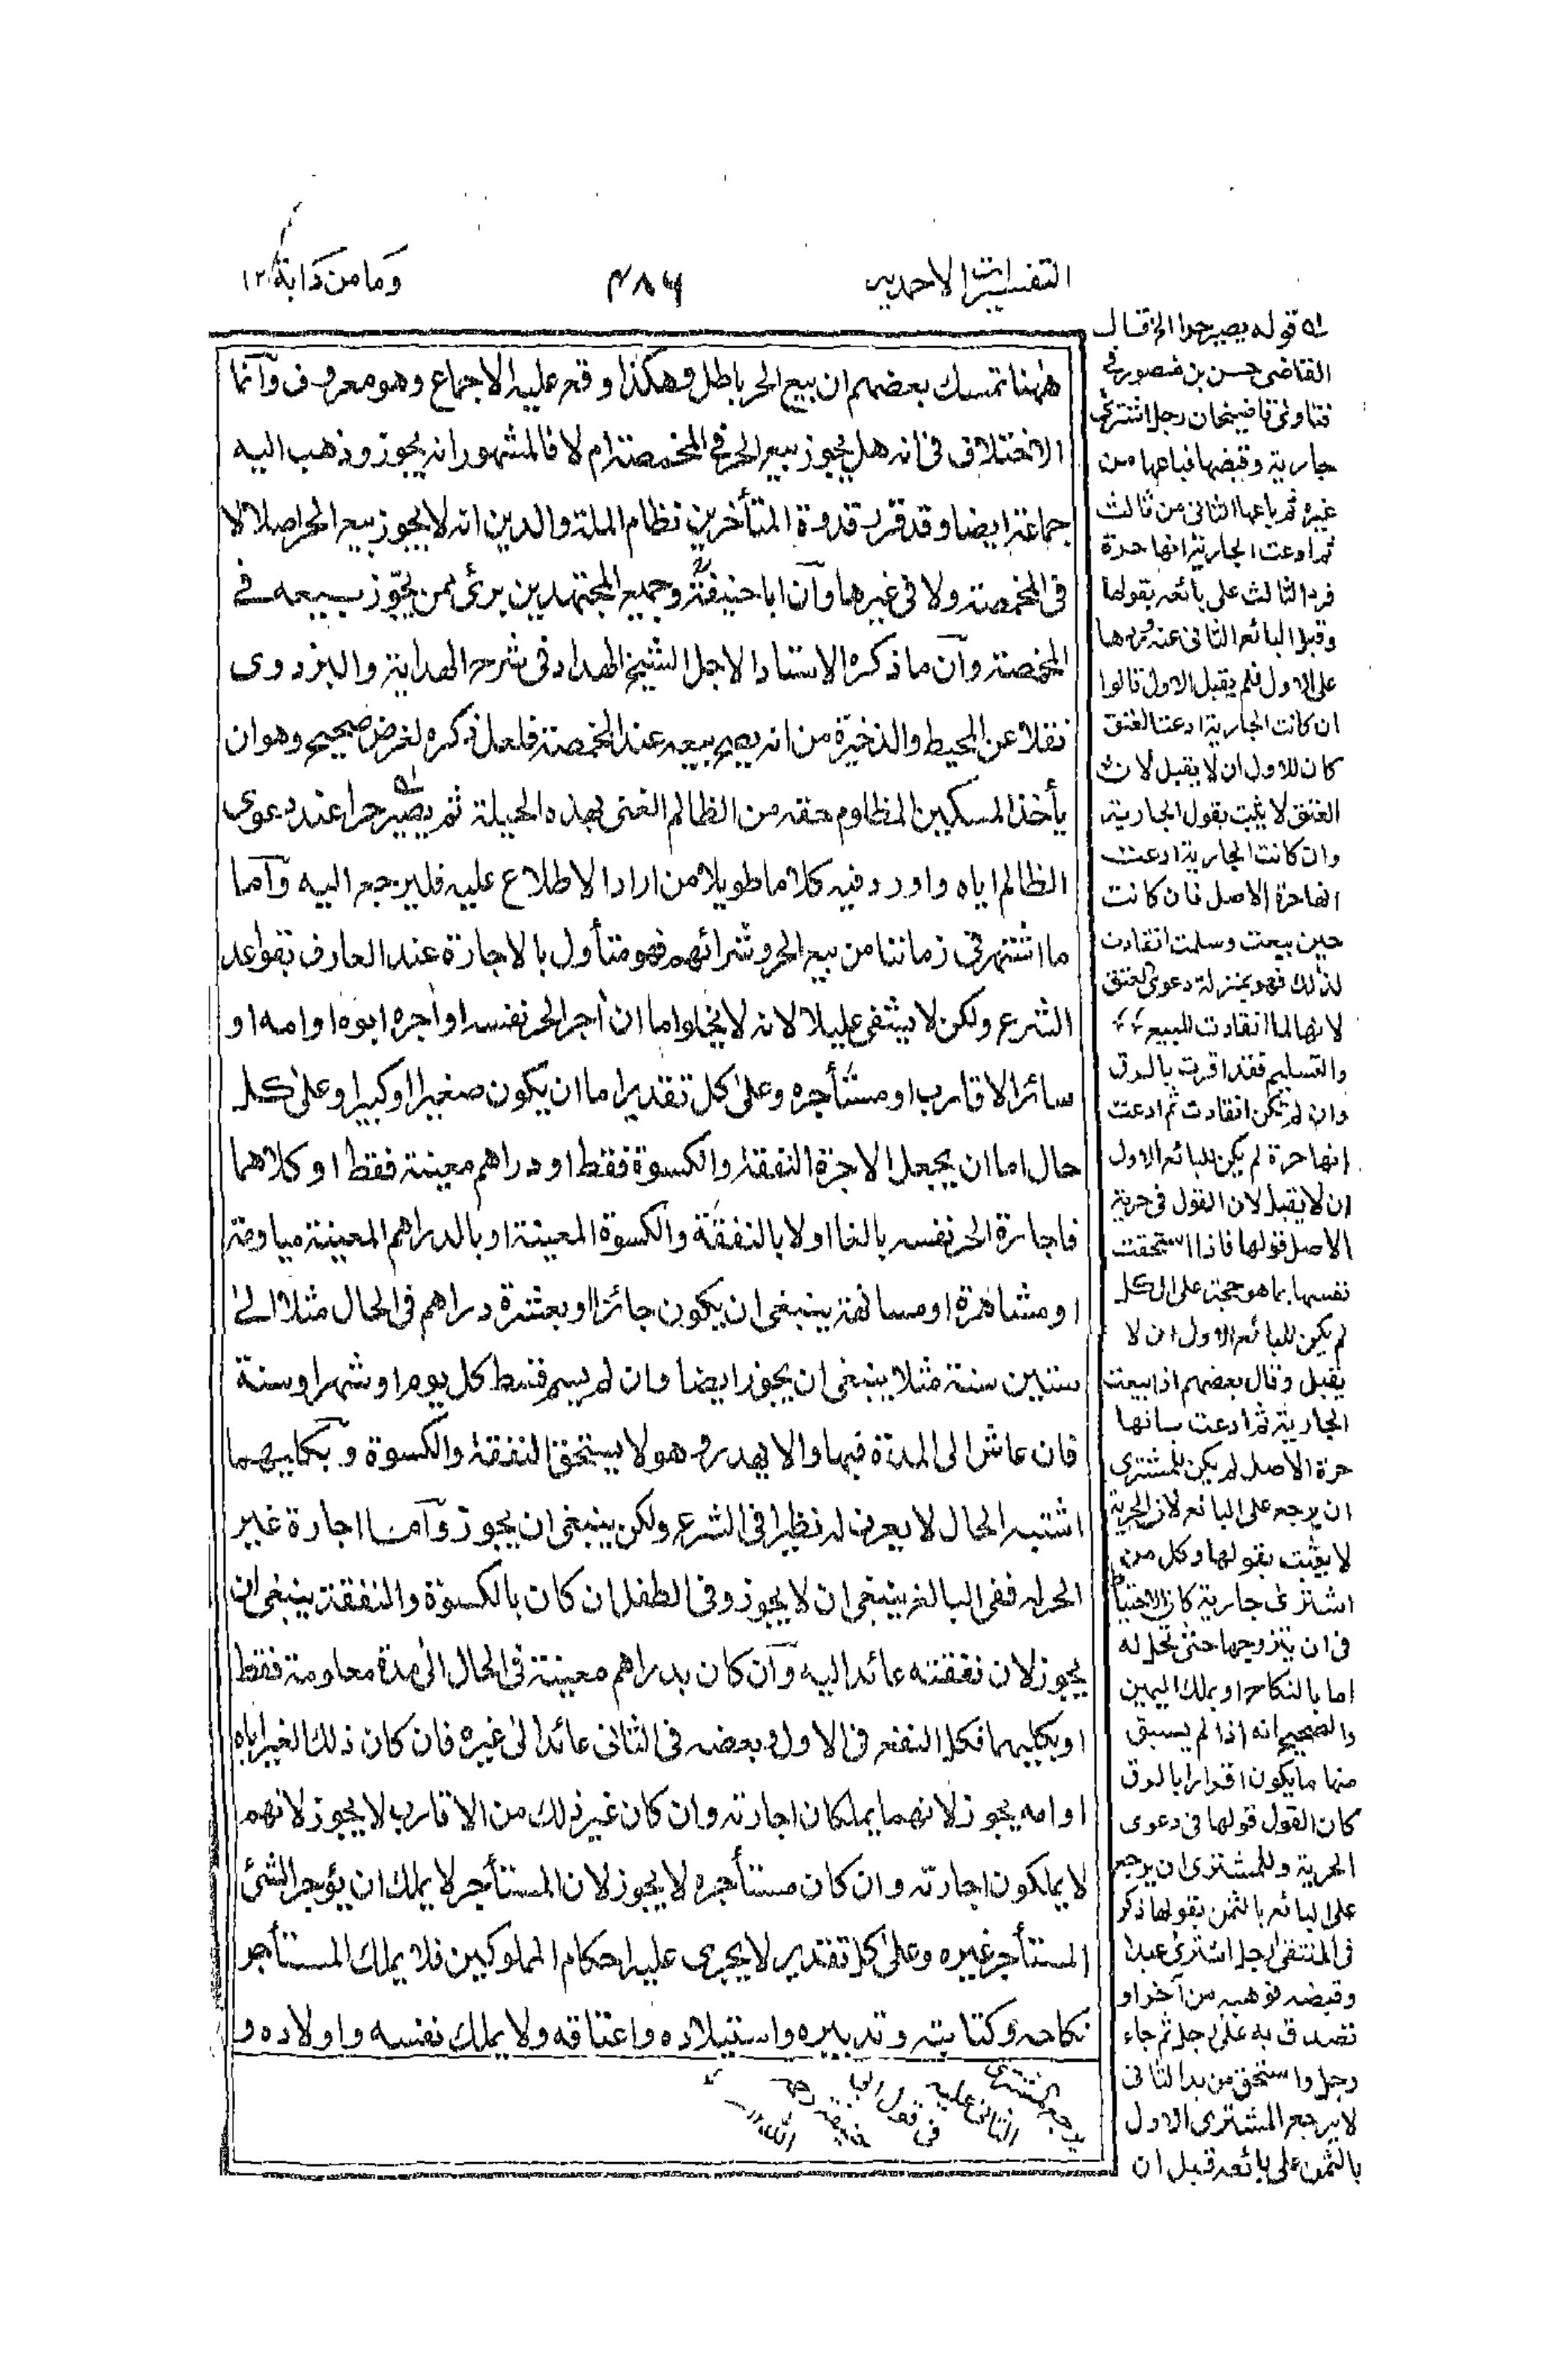 التفسيرات الاحمدية
۴۸۶
وما من دابة ۱۲
ههنا تمسك بعضهم ان بيع الحر باطل وهكذا وقع عليه الاجماع وهو معروف وانما
الاختلاف فى انه هل يجوز بيع الحر فى المخمصة ام لا فالمشهور انه يجوز وذهب اليه
جماعة ايضا وقد قرر قدوة المتأخرين نظام الملة والدين انه لا يجوز بيع الحر اصلا لا
فى المخمصة ولا فى غيرها وان ابا حنيفةؒ وجميع المجتهدين برئ ممن يجوّز بيعه فے
المخمصة وان ما ذكره الاستاد الاجل الشيخ الهداد فى شرح الهداية والبزدوى
نقلا عن المحيط والذخيرة من انه يصح بيعه عند المخمصة فلعل ذكره لغرض صحيح وهو ان
يأخذ المسكين المظلوم حقه من الظالم الغنى بهذه الحيلة ثم يصير حرا عند دعوى
الظالم اياه واورد فيه كلاما طويلا من اراد الاطلاع عليه فليرجع اليه واما
ما اشتهر فى زماننا من بيع الحر وشرائهم فهو متأول بالاجارة عند العارف بقواعد
الشرع ولكن لا يشفى عليلا لانه لا يخلوا ما ان أجر الحر نفسه او أجره ابوه او امه او
سائر الاقارب او مستأجره وعلى كل تقدير اما ان يكون صغيرا او كبيرا وعلى كل
حال اما ان يجعل الاجرة النفقة والكسوة فقط او دراهم معينة فقط او كلاهما
فاجارة الحر نفسه بالغا اولا بالنفقة والكسوة المعينة او بالدراهم المعينة مياومة
او مشاهرة او مسانهة ينبغى ان يكون جائزا او بعشرة دراهم فى الحال مثلا الى
ستين سنة مثلا ينبغى ان يجوز ايضا وان لم يسم قسط كل يوم او شهر او سنة
فان عاش الى المدة فبها والا يهدر وهو لا يستحق النفقة والكسوة وبكليهما
اشتبه الحال لا يعرف له نظير فى الشرع ولكن ينبغى ان يجوز واما اجارة غير
الحر له ففى البالغ ينبغى ان لا يجوز وفى الطفل ان كان بالكسوة والنفقة ينبغى ان
يجوز لان نفقته عائد اليه وان كان بدراهم معينة فى الحال الى مدة معلومة فقط
او بكليهما فكل النفع فى الاول وبعضه فى الثانى عائد الى غيره فان كان ذلك الغير اباه
او امه يجوز لانهما يملكان اجارته وان كان غير ذلك من الاقارب لا يجوز لانهم
لا يملكون اجارته وان كان مستأجره لا يجوز لان المستأجر لا يملك ان يؤجر الشئ
المستأجر غيره وعلى كل تقدير لا يجرى عليه احكام المملوكين فلا يملك المستأجر
نكاحه وكتابته وتدبيره واستيلاده واعتاقه ولا يملك نفسه واولاده و
له قوله يصير حرا الخ قال
القاضى حسن بن منصور فى
فتاوى قاضيخان رجل اشترى
جارية وقبضها فباعها من
غيره ثم باعها الثانى من ثالث
ثم ادعت الجارية انها حرة
فرد الثالث على بائعه بقولها
وقبل البائع الثانى عنه ثم ردها
على الاول فلم يقبل الاول قالوا
ان كانت الجارية ادعت العتق
كان للاول ان لا يقبل لان
العتق لا يثبت بقول الجارية
وان كانت الجارية ادعت
انها حرة الاصل فان كانت
حين بيعت وسلمت انقادت
لذلك فهو بمنزلة دعوى العتق
لانها لما انقادت للبيع
والتسليم فقد اقرت بالرق
وان لم تكن انقادت ثم ادعت
انها حرة لم يكن للبائع الاول
ان لا يقبل لان القول فى حرية
الاصل قولها فاذا استحقت
نفسها بما هو حجة على الكل
لم يكن للبائع الاول ان لا
يقبل وقال بعضهم اذا بيعت
الجارية ثم ادعت بانها
حرة الاصل لم يكن للمشترى
ان يرجع على البائع لان الحرية
لا يثبت بقولها وكل من
اشترى جارية كان الاحتياط
فى ان يتزوجها حتى تحل له
اما بالنكاح او بملك اليمين
والصحيح انه اذا لم يسبق
منها ما يكون اقرارا بالرق
كان القول قولها فى دعوى
الحرية وللمشترى ان يرجع
على البائع بالثمن بقولها ذكر
فى المنتقى رجل اشترى عبدا
وقبضه فوهبه من آخر او
تصدق به على رجل ثم جاء
رجل واستحق من يد الثانى
لا يرجع المشترى الاول
بالثمن على بائعه قبل ان
يرجع المشترى
الثانى عليه
فى قول
الله